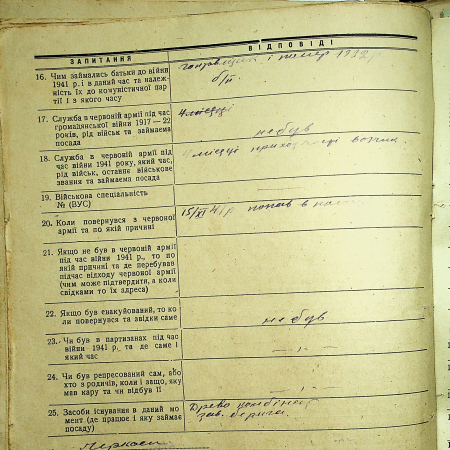 ЗАПИТАННЯ ВІДПОВІДІ
16. Чим займались батьки до війни
1941 р. і в даний час та належ-
ність їх до комуністичної пар
тії і з якого часу
і помер 1922 р
б/п.
17. Служба в червоній армії під час
громадянської війни 1917—22
років, рід військ та займаєма
посада
не був
18. Служба в червоній армії під
час війни 1941 року, який час,
рід військ, останнє військове
звання та займаєма посада
4 місяці
19. Військова спеціальність
№ (ВУС)
20. Коли повернувся з червоної
армії та по якій причині
15/XI 41 р попав в
21. Якщо не був в червоній армії
під час війни 1941 р., то по
якій причині та де перебував
підчас відходу червоної армії
(чим може підтвердити, а коли
свідками то їх адреса)
22. Якщо був евакуйований, то ко
ли повернувся та звідки саме
не був
23. Чи був в партизанах під час
війни 1941 р. та де саме і
який час
— „ —
24. Чи був репресований сам, або
хто з родичів, коли і защо, яку
мав кару та чи відбув її
— „ —
25. Засоби існування в даний мо
мент (де працює і яку займає
посаду)
Древо комбінат
зав.
Черкаси